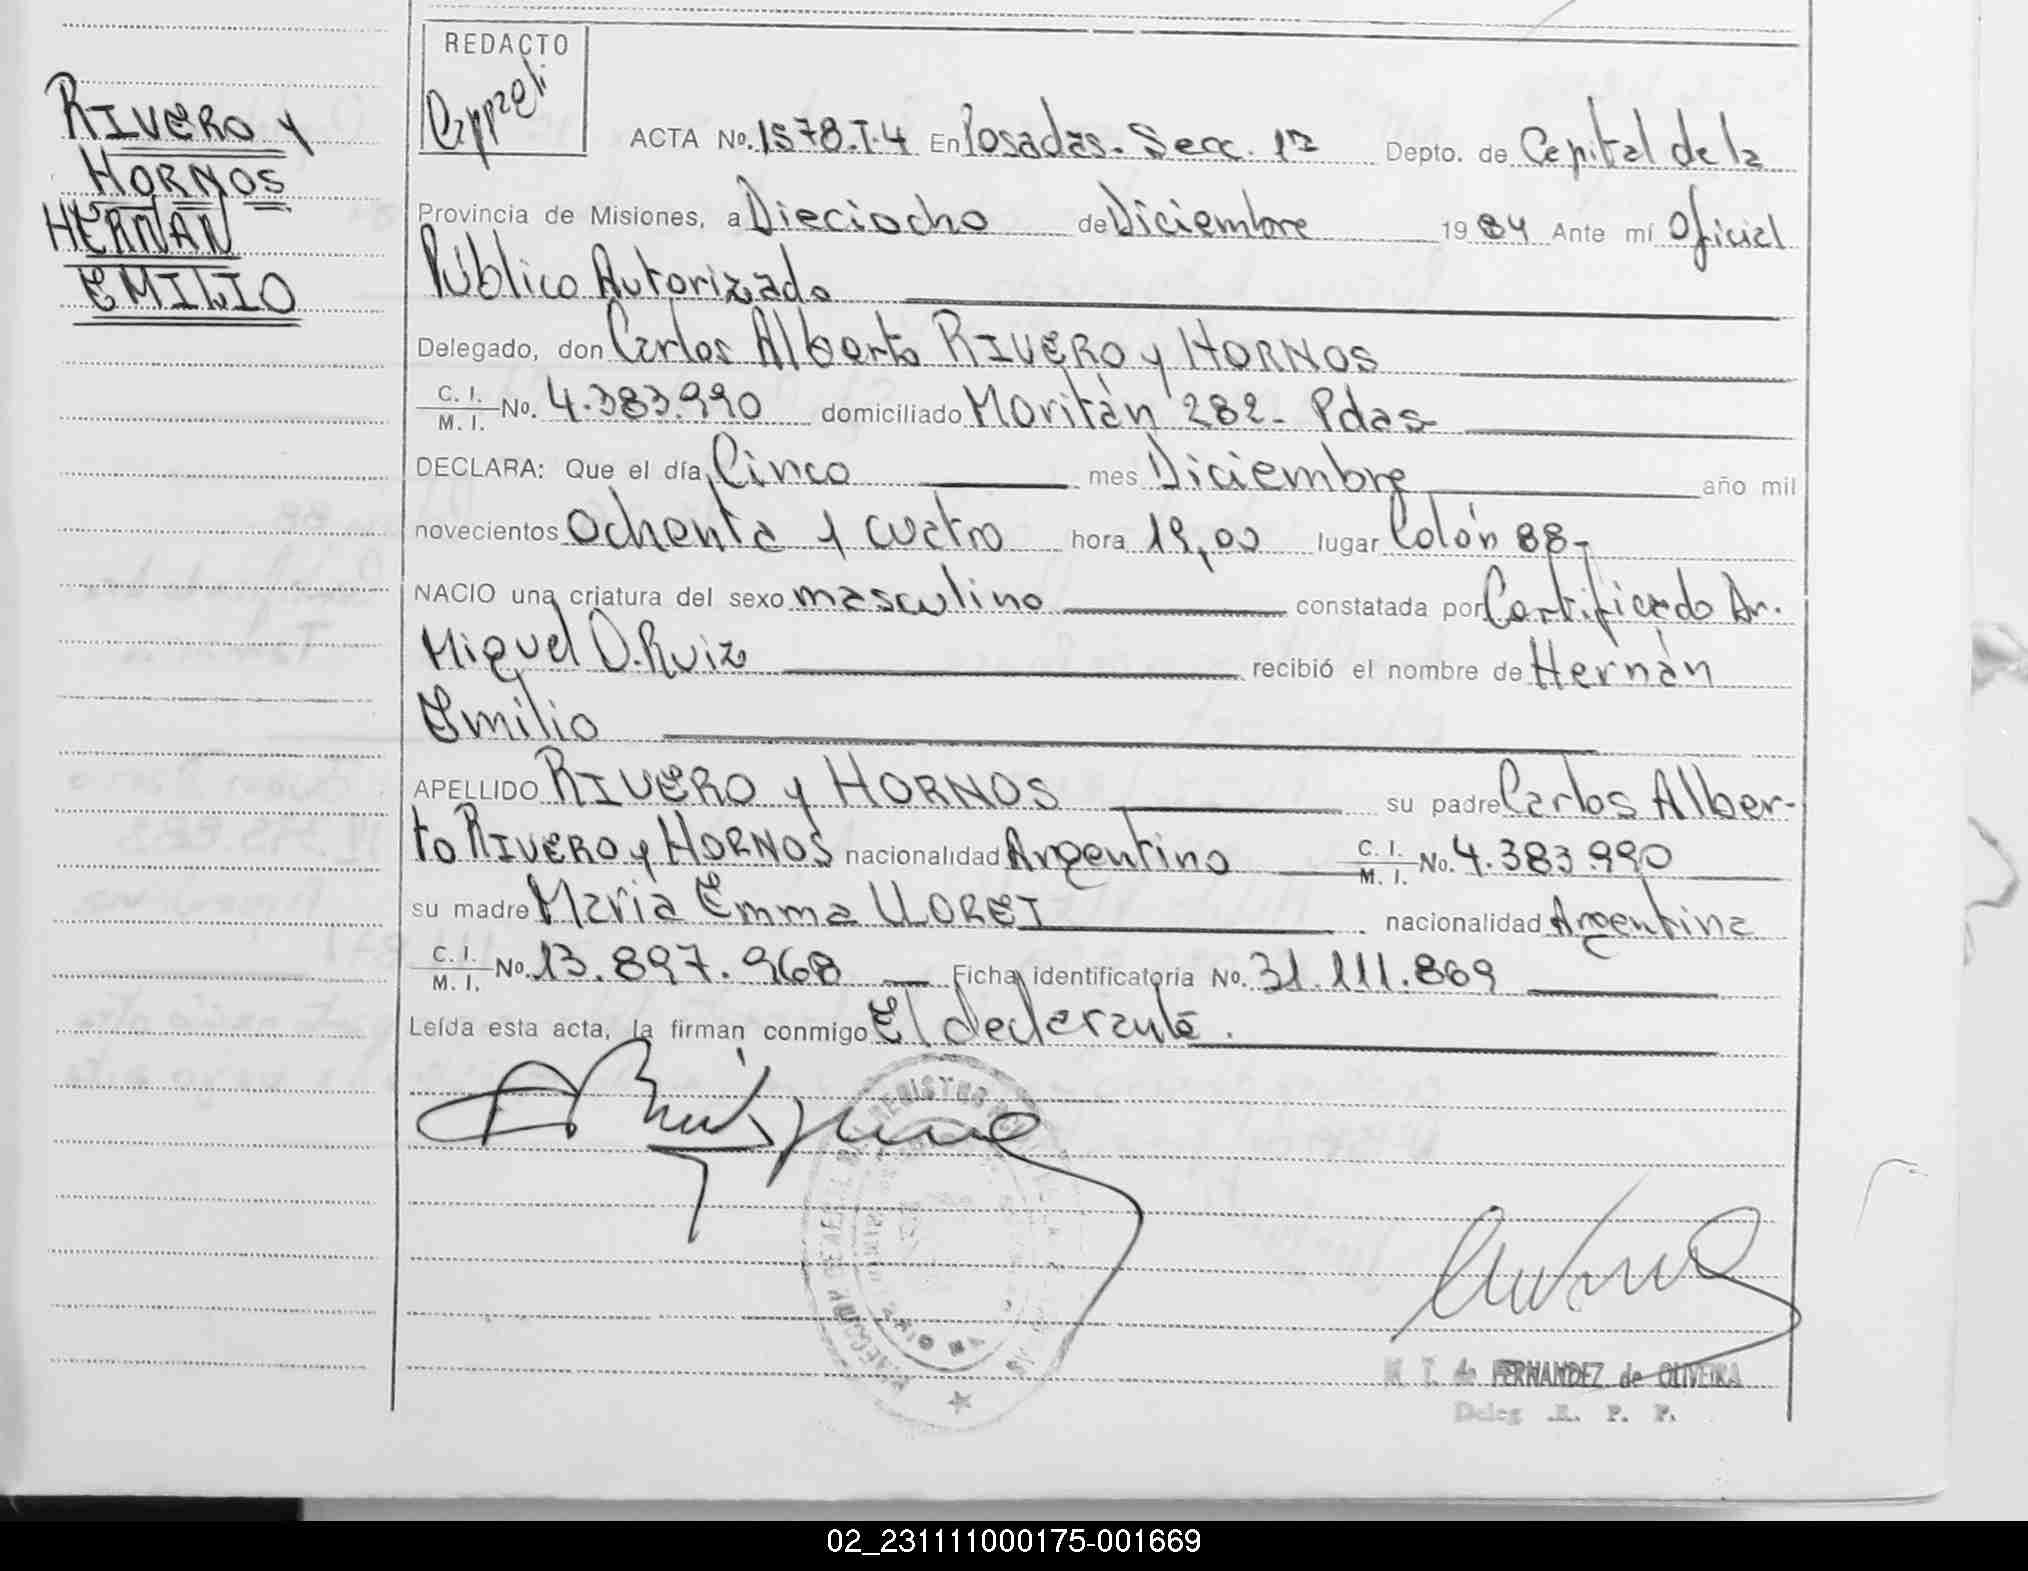 RIVERO y
HORNOS
HERNÁN
EMILIO
REDACTO
ACTA No. 1578.T.4 En Posadas. Secc. 1ª Depto. de Capital de la
Provincia de Misiones, a Dieciocho de Diciembre 1984 Ante mí Oficial
Público Autorizado
Delegado, don Carlos Alberto RIVERO y HORNOS
C. I.
M. I. No. 4.383.990 domiciliado Moritán 282- Pdas-
DECLARA: Que el día Cinco mes Diciembre año mil
novecientos ochenta y cuatro hora 19,00 lugar Colón 88-
NACIO una criatura del sexo masculino constatada por Certificado Dr.
Miguel O. Ruiz recibió el nombre de Hernán
Emilio
APELLIDO RIVERO y HORNOS su padre Carlos Alber-
to RIVERO y HORNOS nacionalidad Argentino C. I.
M. I. No. 4.383.990
su madre María Emma LLORET nacionalidad Argentina
C. I.
M. I. No. 13.897.968 Ficha identificatoria No. 31.111.869
Leída esta acta, la firman conmigo El declarante.
FERNANDEZ de OLIVEIRA
Deleg. R. P. P.
02_231111000175-001669